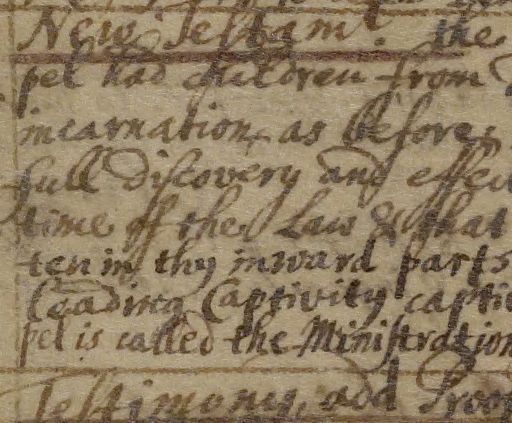 New Testam.t the
pel had children from
incarnation as before
full discovery and effec
time off the Law & that
ten in thy inward parts
leading Captivity captiv
pel is called the Ministration
Testimony, and Proo